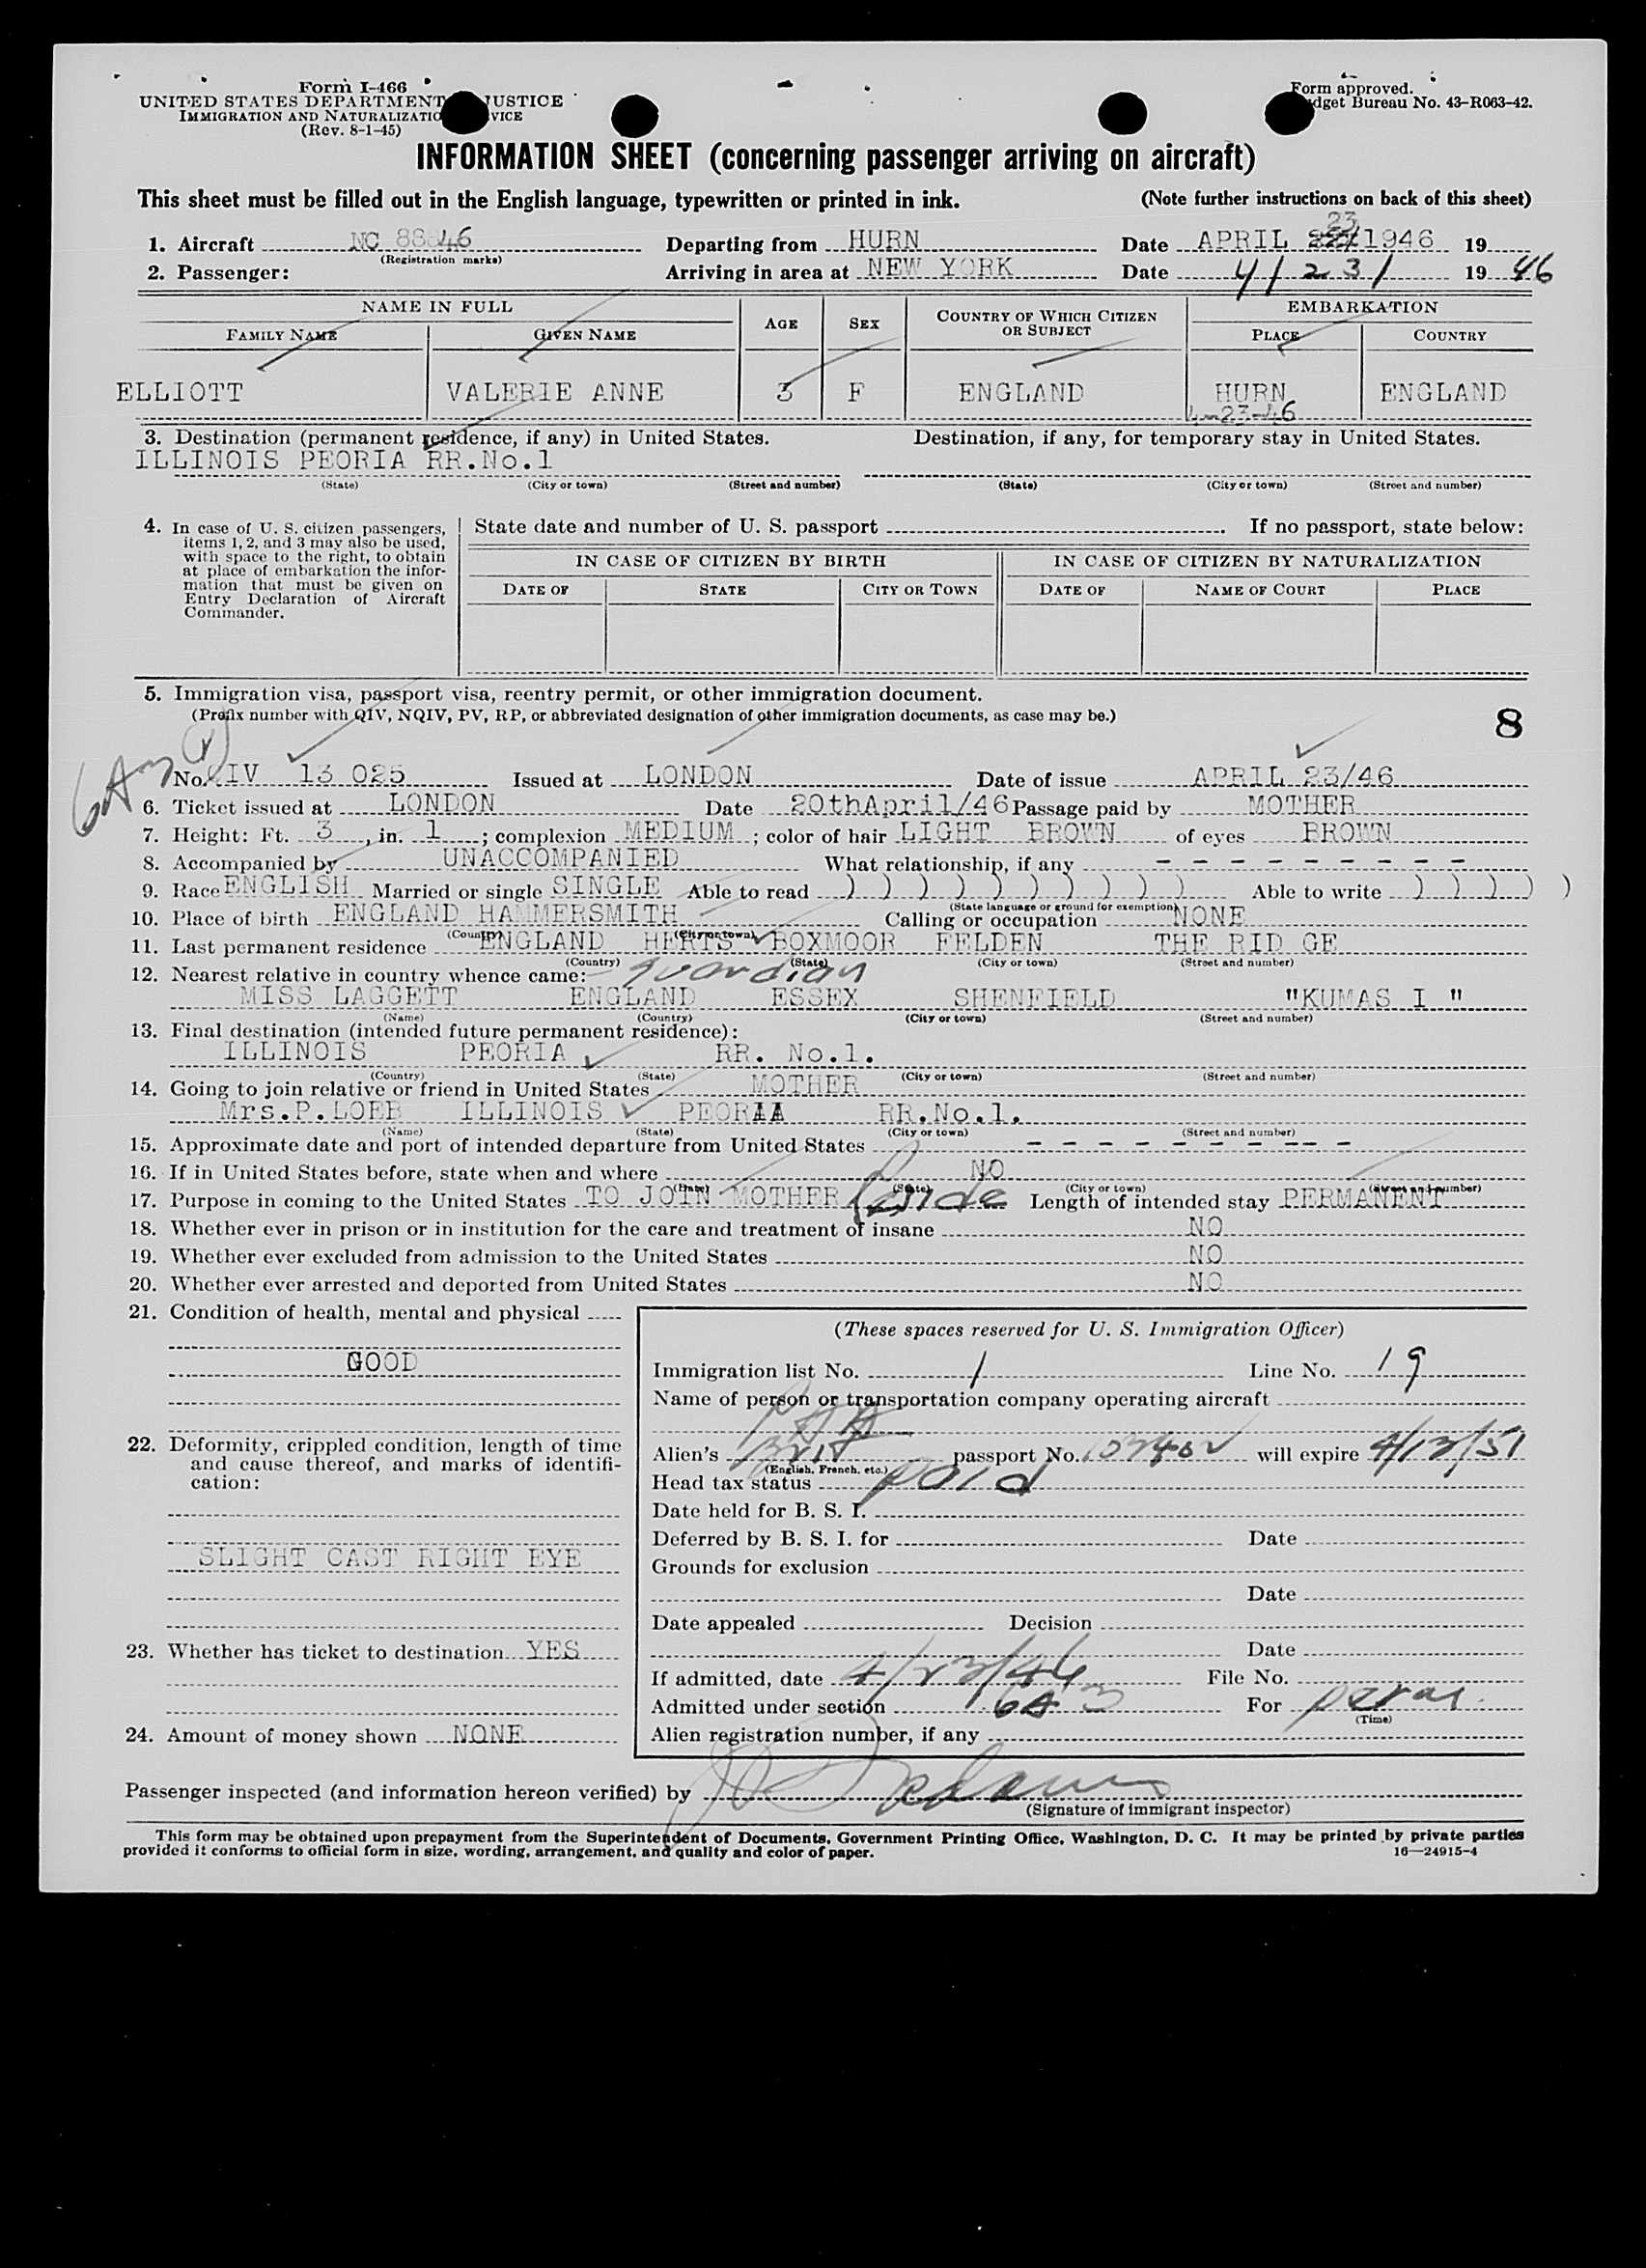 Form I-466
UNITED STATES DEPARTMENT JUSTICE
IMMIGRATION AND NATURALIZATION
(Rev. 8-1-45)
Form approved.
Budget Bureau No. 43-R063-42.
INFORMATION SHEET (concerning passenger arriving on aircraft)
This sheet must be filled out in the English language, typewritten or printed in ink. (Note further instructions on back of this sheet)
23
1. Aircraft NC Departing from HURN Date APRIL 1946 19
(Registration marks)
2. Passenger: Arriving in area at NEW YORK Date 4/23/ 19 46
NAME IN FULL AGE SEX COUNTRY OF WHICH CITIZEN OR SUBJECT EMBARKATION
FAMILY NAME GIVEN NAME PLACE COUNTRY
ELLIOTT VALERIE ANNE 3 F ENGLAND HURN ENGLAND
4-23-46
3. Destination (permanent residence, if any) in United States. Destination, if any, for temporary stay in United States.
ILLINOIS PEORIA RR.No.1
(State) (City or town) (Street and number) (State) (City or town) (Street and number)
4. In case of U. S. citizen passengers, items 1, 2, and 3 may also be used, with space to the right, to obtain at place of embarkation the information that must be given on Entry Declaration of Aircraft Commander.
State date and number of U. S. passport . If no passport, state below:
IN CASE OF CITIZEN BY BIRTH IN CASE OF CITIZEN BY NATURALIZATION
DATE OF STATE CITY OR TOWN DATE OF NAME OF COURT PLACE
5. Immigration visa, passport visa, reentry permit, or other immigration document.
(Prefix number with QIV, NQIV, PV, RP, or abbreviated designation of other immigration documents, as case may be.)
8
6A3
No. QIV 13 025 Issued at LONDON Date of issue APRIL 23/46
6. Ticket issued at LONDON Date 20thApril/46 Passage paid by MOTHER
7. Height: Ft. 3, in. 1; complexion MEDIUM; color of hair LIGHT BROWN of eyes BROWN
8. Accompanied by UNACCOMPANIED What relationship, if any - - - - - - - - -
9. Race ENGLISH Married or single SINGLE Able to read ) ) ) ) ) ) ) ) ) ) Able to write ) ) ) ) )
(State language or ground for exemption)
10. Place of birth ENGLAND HAMMERSMITH Calling or occupation NONE
(Country) (City or town)
11. Last permanent residence ENGLAND HERTS BOXMOOR FELDEN THE RID GE
(Country) (State) (City or town) (Street and number)
12. Nearest relative in country whence came: guardian
MISS LAGGETT ENGLAND ESSEX SHENFIELD "KUMAS I "
(Name) (Country) (City or town) (Street and number)
13. Final destination (intended future permanent residence):
ILLINOIS PEORIA RR. No.1.
(Country) (State) (City or town) (Street and number)
14. Going to join relative or friend in United States MOTHER
Mrs.P.LOEB ILLINOIS PEORIA RR.No.1.
(Name) (State) (City or town) (Street and number)
15. Approximate date and port of intended departure from United States - - - - - - - - - -
16. If in United States before, state when and where NO
(Date) (State) (City or town) (Street and number)
17. Purpose in coming to the United States TO JOIN MOTHER Reside Length of intended stay PERMANENT
18. Whether ever in prison or in institution for the care and treatment of insane NO
19. Whether ever excluded from admission to the United States NO
20. Whether ever arrested and deported from United States NO
21. Condition of health, mental and physical
GOOD
22. Deformity, crippled condition, length of time and cause thereof, and marks of identification:
SLIGHT CAST RIGHT EYE
23. Whether has ticket to destination YES
24. Amount of money shown NONE
(These spaces reserved for U. S. Immigration Officer)
Immigration list No. 1 Line No. 19
Name of person or transportation company operating aircraft
PAA
Alien's Brit passport No. will expire 4/12/51
(English, French, etc.)
Head tax status paid
Date held for B. S. I.
Deferred by B. S. I. for Date
Grounds for exclusion
Date
Date appealed Decision
Date
If admitted, date 4/23/46 File No.
Admitted under section 6A3 For
(Time)
Alien registration number, if any
Passenger inspected (and information hereon verified) by
(Signature of immigrant inspector)
This form may be obtained upon prepayment from the Superintendent of Documents, Government Printing Office, Washington, D. C. It may be printed by private parties
provided it conforms to official form in size, wording, arrangement, and quality and color of paper. 16—24915-4